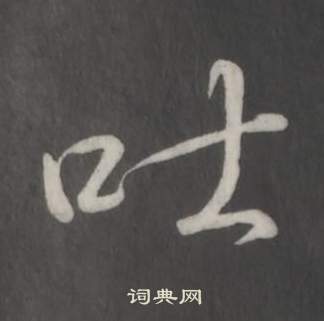 吐
词典网